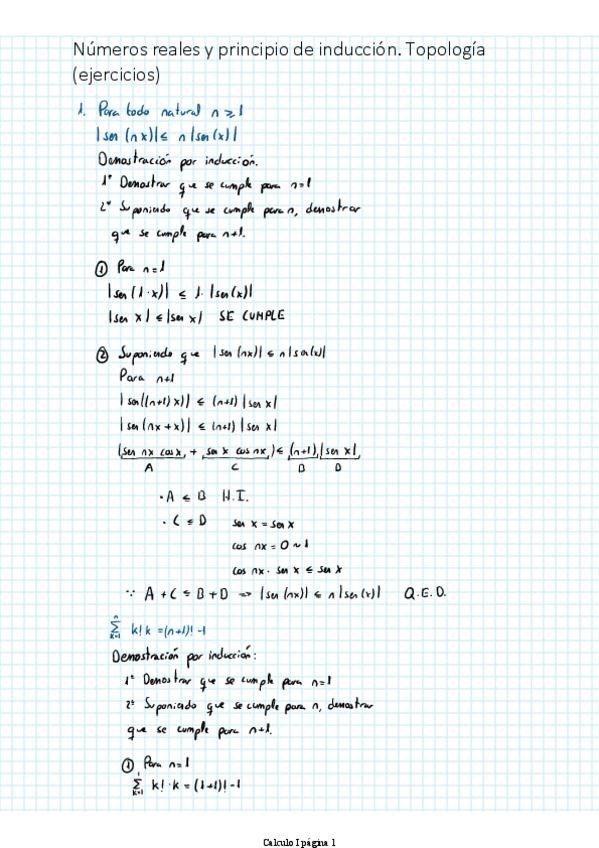 Números reales y principio de inducción. Topología
(ejercicios)
1. Para todo natural n ≥ 1
|sen (n x)| ≤ n |sen (x)|
Demostración por inducción.
1º Demostrar que se cumple para n=1
2º Suponiendo que se cumple para n, demostrar
que se cumple para n+1.
① Para n=1
|sen (1·x)| ≤ 1·|sen(x)|
|sen x| ≤ |sen x| SE CUMPLE
② Suponiendo que |sen (nx)| ≤ n|sen(x)|
Para n+1
|sen((n+1)x)| ≤ (n+1)|sen x|
|sen (nx + x)| ≤ (n+1) |sen x|
|sen nx cos x + sen x cos nx| ≤ (n+1) |sen x|
A C B D
· A ≤ B H.I.
· C ≤ D sen x = sen x
cos nx = 0 ~ 1
cos nx · sen x ≤ sen x
∵ A + C ≤ B + D => |sen (nx)| ≤ n |sen (x)| Q.E.D.
n
Σ k! k = (n+1)! -1
k=1
Demostración por inducción:
1º Demostrar que se cumple para n=1
2º Suponiendo que se cumple para n, demostrar
que se cumple para n+1.
① Para n=1
1
Σ k! · k = (1+1)! -1
k=1
Calculo I página 1